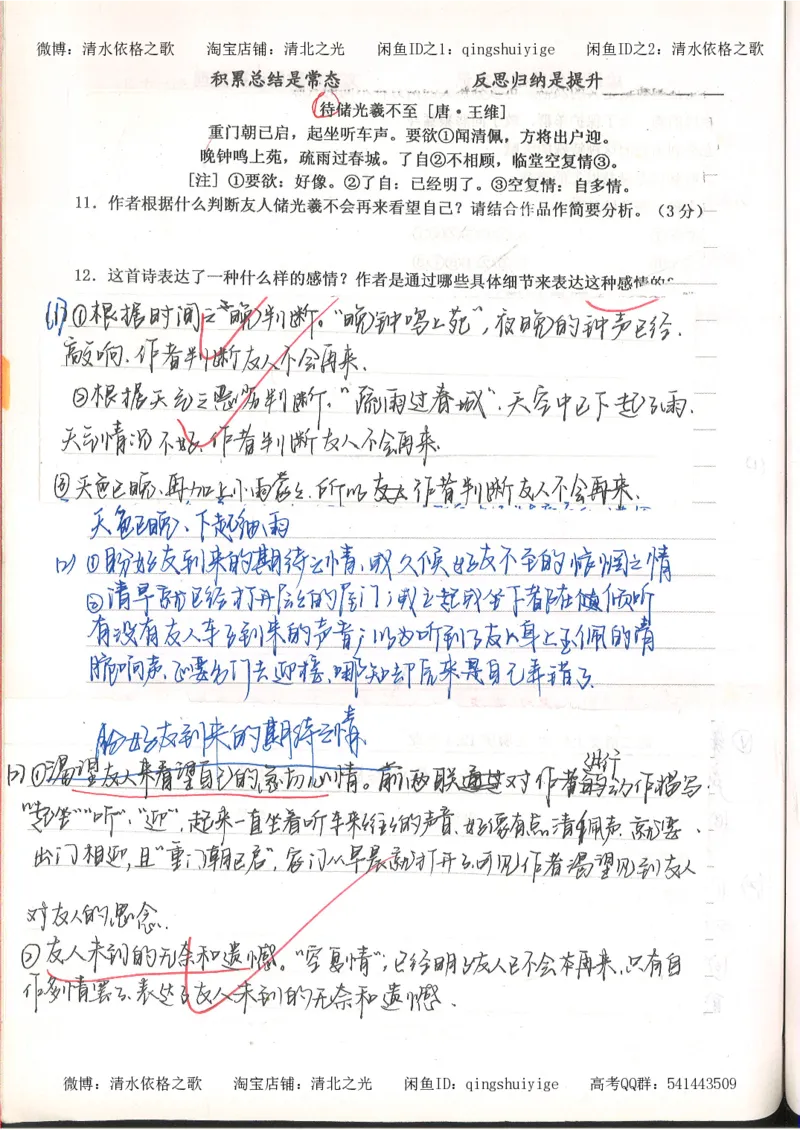 微博：清水依格之歌 淘宝店铺：清北之光 闲鱼ID之1：qingshuiyige 闲鱼ID之2：清水依格之歌
积累总结是常态 反思归纳是提升
待储光羲不至 [唐·王维]
重门朝已启，起坐听车声。要欲①闻清佩，方将出户迎。
晚钟鸣上苑，疏雨过春城。了自②不相顾，临堂空复情③。
[注] ①要欲：好像。②了自：已经明了。③空复情：自多情。
11．作者根据什么判断友人储光羲不会再来看望自己？请结合作品作简要分析。（3分）
12．这首诗表达了一种什么样的感情？作者是通过哪些具体细节来表达这种感情的
(1)①根据时间之晚判断。“晚钟鸣上苑”，夜晚的钟声已经
敲响，作者判断友人不会再来。
②根据天气之恶劣判断。“疏雨过春城”，天空中已下起了雨，
天气情况不好，作者判断友人不会再来。
③天色已晚，再加上小雨蒙蒙，所以作者判断友人不会再来。
天色已晚、下起细雨
(2)①盼好友到来的期待之情，或久候好友不至的惆怅之情
②清早就已经打开层层的屋门；或立起或坐下都在倾听
有没有友人车子到来的声音；以为听到了友人身上玉佩的清
脆响声，正要出门去迎接，哪知却原来是自己弄错了。
盼好友到来的期待之情
(2)①渴望友人来看望自己的急切心情。前两联通过对作者进行动作描写，
“起坐”“听”、“迎”，起来一直坐着听车来往的声音，好像有点清佩声，就要
出门相迎，且“重门朝已启”，家门从早晨就打开了，可见作者渴望见到友人
对友人的思念。
②友人未到的无奈和遗憾。“空复情”；已经明了友人已不会再来，只有自
作多情罢了，表达了友人未到的无奈和遗憾。
微博：清水依格之歌 淘宝店铺：清北之光 闲鱼ID：qingshuiyige 高考QQ群：541443509